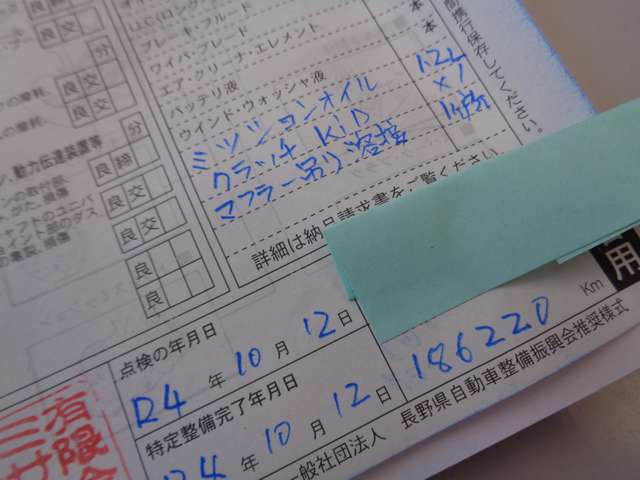 LLC(ロング
ブレーキ・フルード
ワイパ・ブレード
エア・クリーナ・エレメント 本
バッテリ液 本
ウインド・ウォッシャ液
ミッションオイル 1.2L
クラッチ KID ×1
マフラー吊り溶接 1ヶ所
詳細は納品請求書をご覧ください
間携行保存してください。
の摩耗 良 交
良 交
分
動力伝達装置等 分
の取付部 良 締
がた、損傷 良 交
シャフトのユニバ 良 交
イント部のダス
の亀裂、損傷 良
良
用
点検の年月日
R4 年 10 月 12 日
Km
186220
特定整備完了年月日
R4 年 10 月 12 日
一般社団法人 長野県自動車整備振興会推奨様式
有限会
三サ